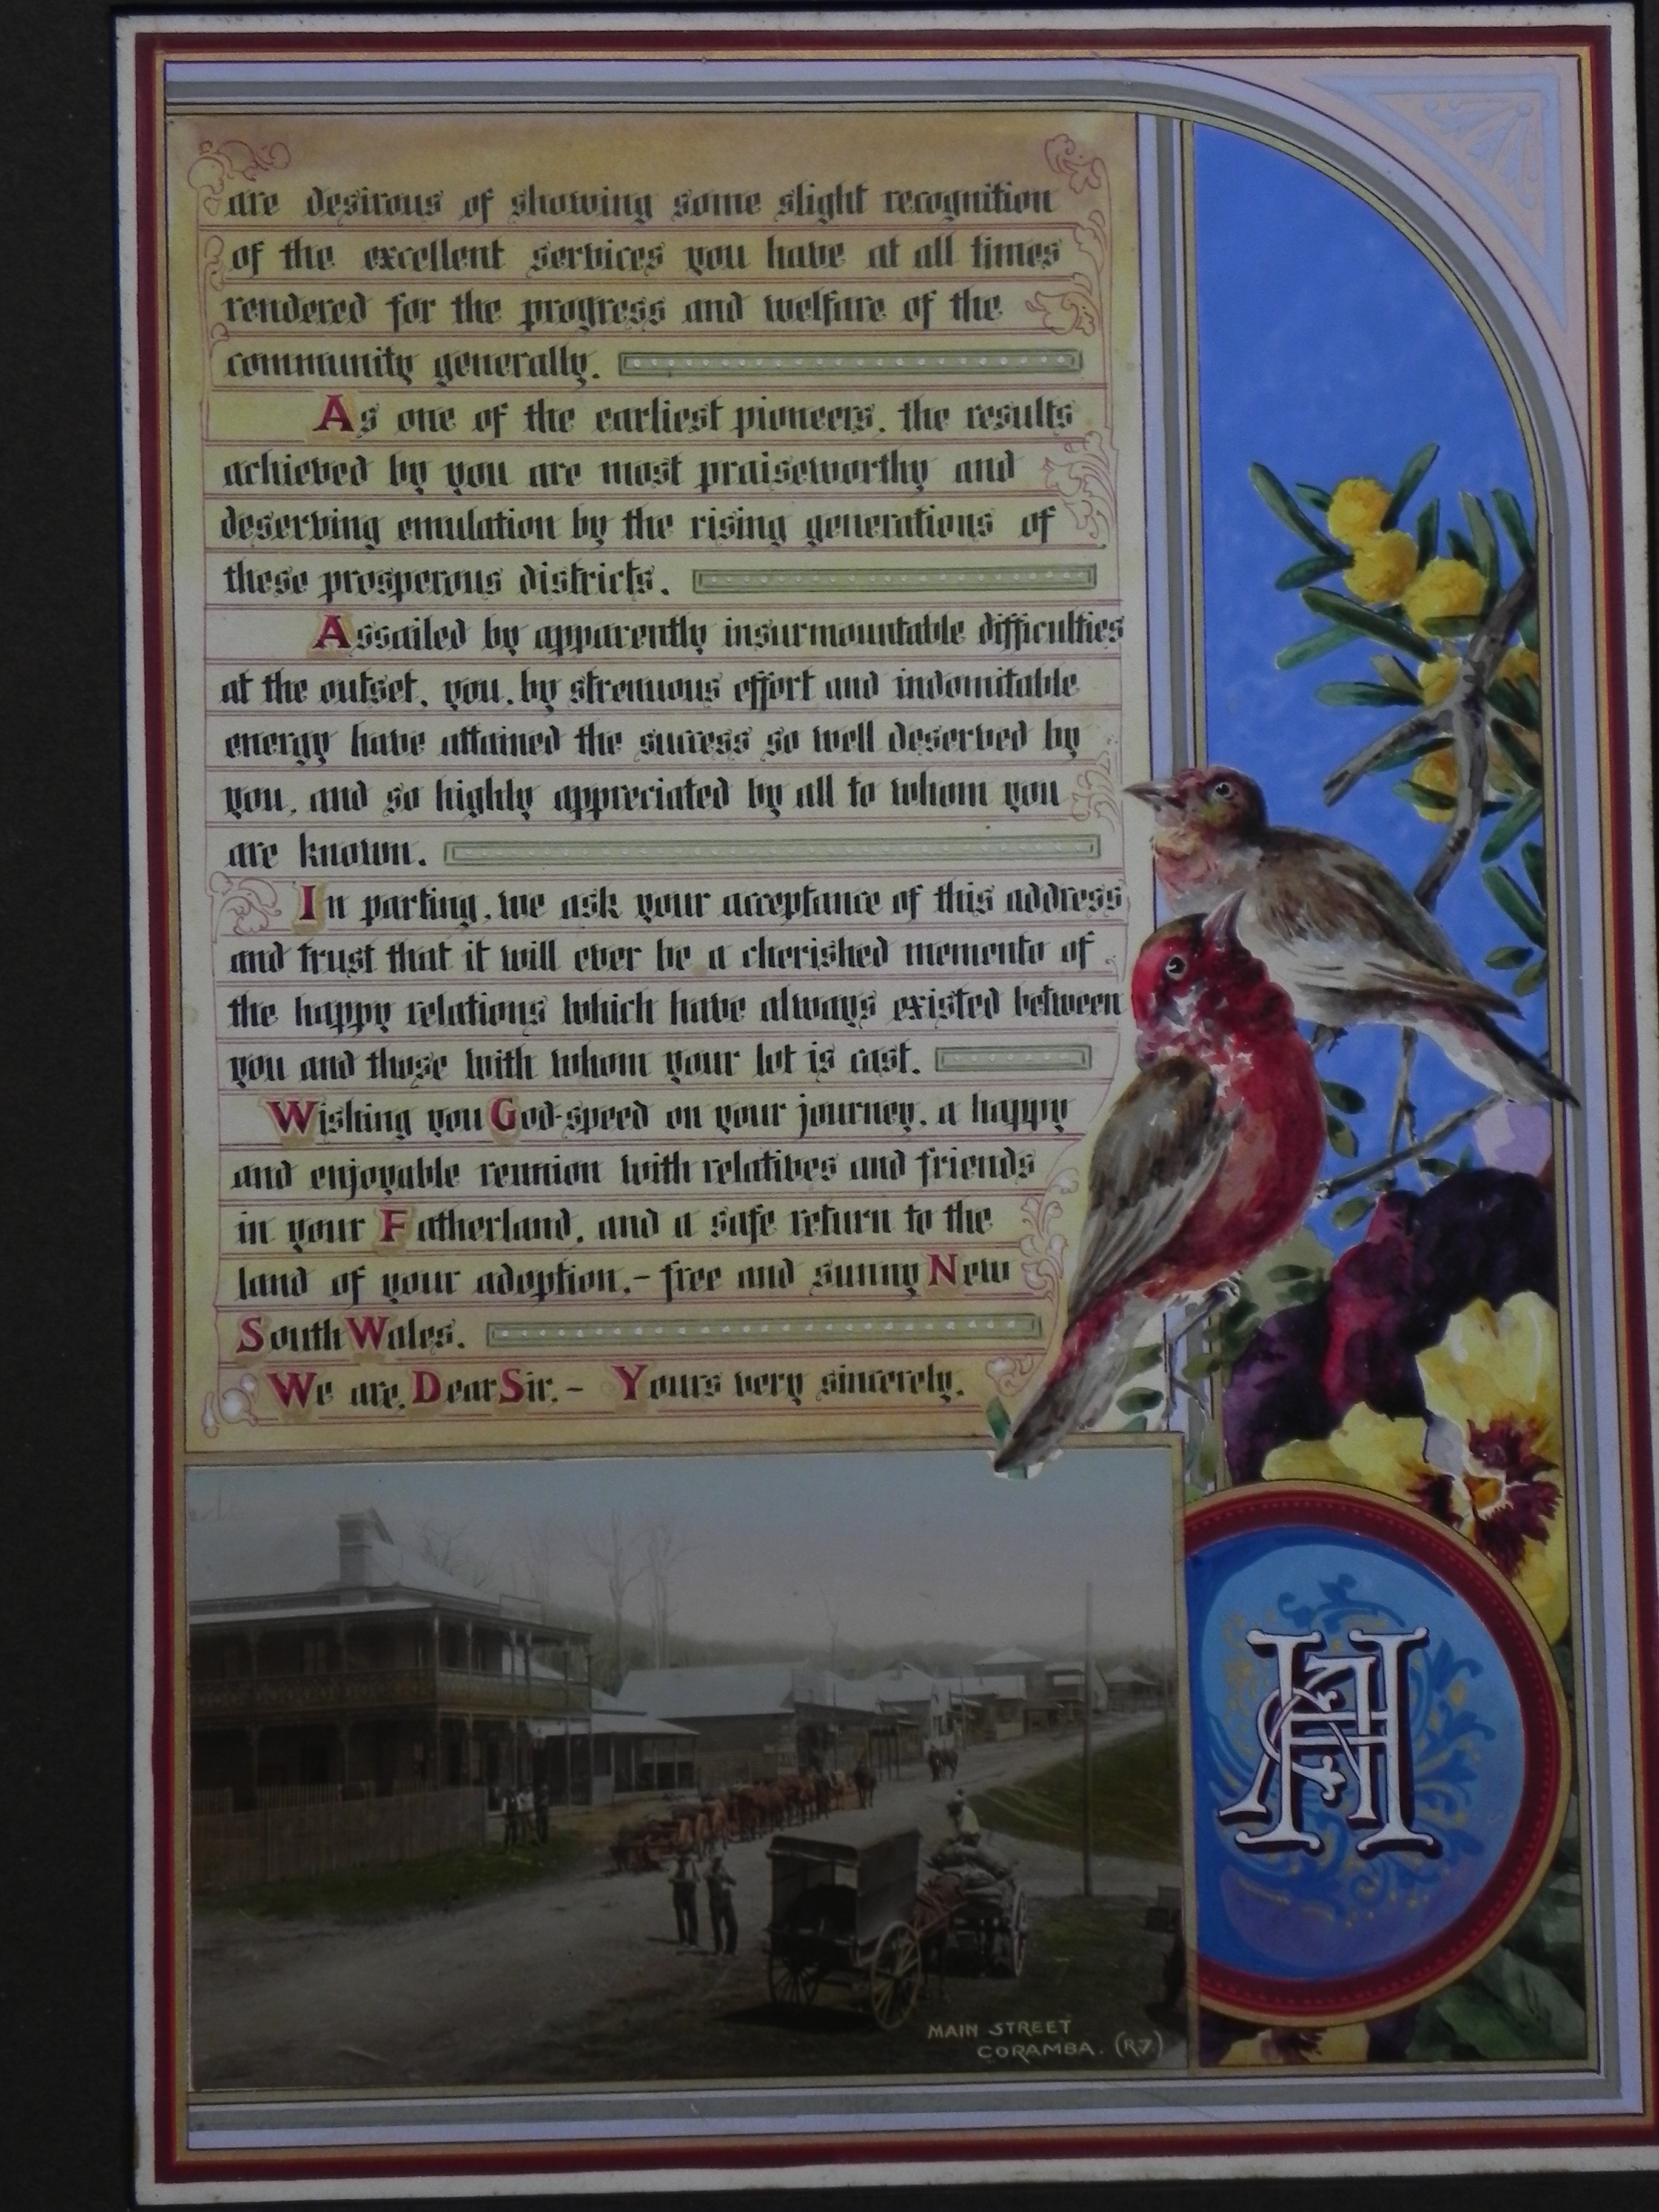 are desirous of showing some slight recognition
of the excellent services you have at all times
rendered for the progress and welfare of the
community generally.
As one of the earliest pioneers, the results
achieved by you are most praiseworthy and
deserving emulation by the rising generations of
these prosperous districts.
Assailed by apparently insurmountable difficulties
at the outset, you, by strenuous effort and indomitable
energy have attained the success so well deserved by
you, and so highly appreciated by all to whom you
are known.
In parting, we ask your acceptance of this address
and trust that it will ever be a cherished memento of
the happy relations which have always existed between
you and those with whom your lot is cast.
Wishing you God-speed on your journey, a happy
and enjoyable reunion with relatives and friends
in your Fatherland, and a safe return to the
land of your adoption,- free and sunny New
South Wales.
We are, Dear Sir,- Yours very sincerely,
MAIN STREET
CORAMBA. (R7.)